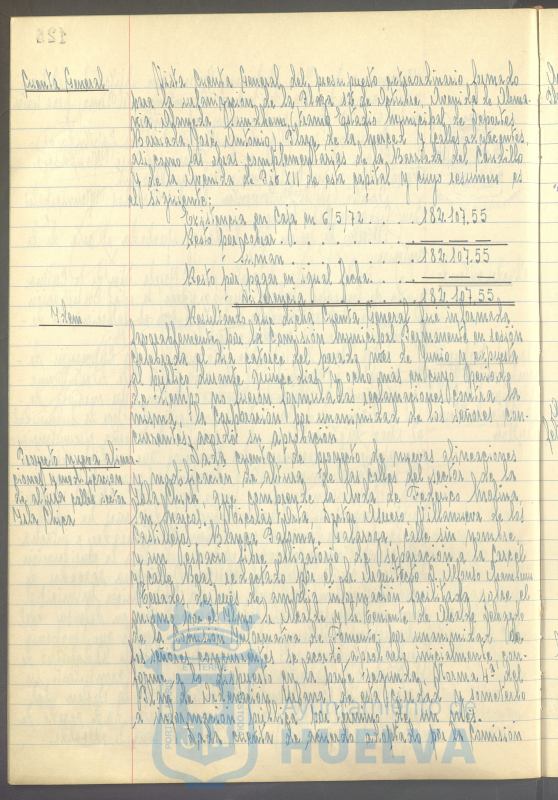 125
Cuenta General
Vista Cuenta General del presupuesto extraordinario formado
para la urbanización de la Plaza 12 de Octubre, Avenida de Alema-
nia, Alameda Sundheim, Estadio Municipal de Deportes
Barriada José Antonio, Plaza de la Merced y calles adyacentes,
así como las obras complementarias de la Barriada del Carmen
y de la Avenida de Pío XII de esta capital y cuyo resumen es
el siguiente:
Existencia en Caja en 6/5/72 . . . . 182.107,55
Resto por cobrar . . . . . . . . .
Suman . . . . . . . . 182.107,55
Resto por pagar en igual fecha . . .
diferencia . . . . . 182.107,55
Idem
Resultando que dicha Cuenta General fué informada
favorablemente por la Comisión Municipal Permanente en sesión
celebrada el día catorce del pasado mes de Junio y expuesta
al público durante quince días y ocho más en cuyo periodo
de tiempo no fueron formuladas reclamaciones contra la
misma, la Corporación por unanimidad de los señores con-
currentes acordó su aprobación.
Proyecto nueva alinea-
ciones y modificación
de altura calles sector
Isla Chica
Dada cuenta de proyecto de nuevas alineaciones
y modificación de altura de las calles del sector de la
Isla Chica que comprende la Avda de Federico Molina
San Marcos, Nicolás, Doctor Villanueva de los
Castillejos, Blanca Paloma, calle sin nombre
y un espacio libre obligatorio de separación a la Carcel
y calle Real, redactado por el Sr. Arquitecto D. Alfonso
después de amplia información facilitada sobre el
mismo por el Iltmo. Sr. Alcalde y Sr. Teniente de Alcalde delegado
de la Comisión Informativa de Fomento; por unanimidad de
los señores concurrentes se acordó aprobarlo inicialmente con-
forme a lo dispuesto en la Norma 4ª del
Plan de Ordenación Urbana de esta Ciudad y someterlo
a información pública por término de un mes.
Dada cuenta de acuerdo adoptado por la Comisión
Ayuntamiento de
HUELVA